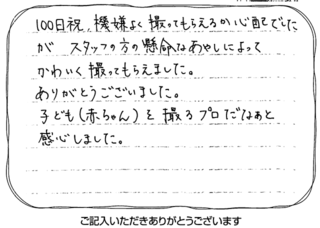 100日祝、機嫌よく撮ってもらえるか心配でした
が スタッフの方の懸命なあやしによって
かわいく撮ってもらえました。
ありがとうございました。
子ども(赤ちゃん)を撮るプロだなぁと
感心しました。
ご記入いただきありがとうございます